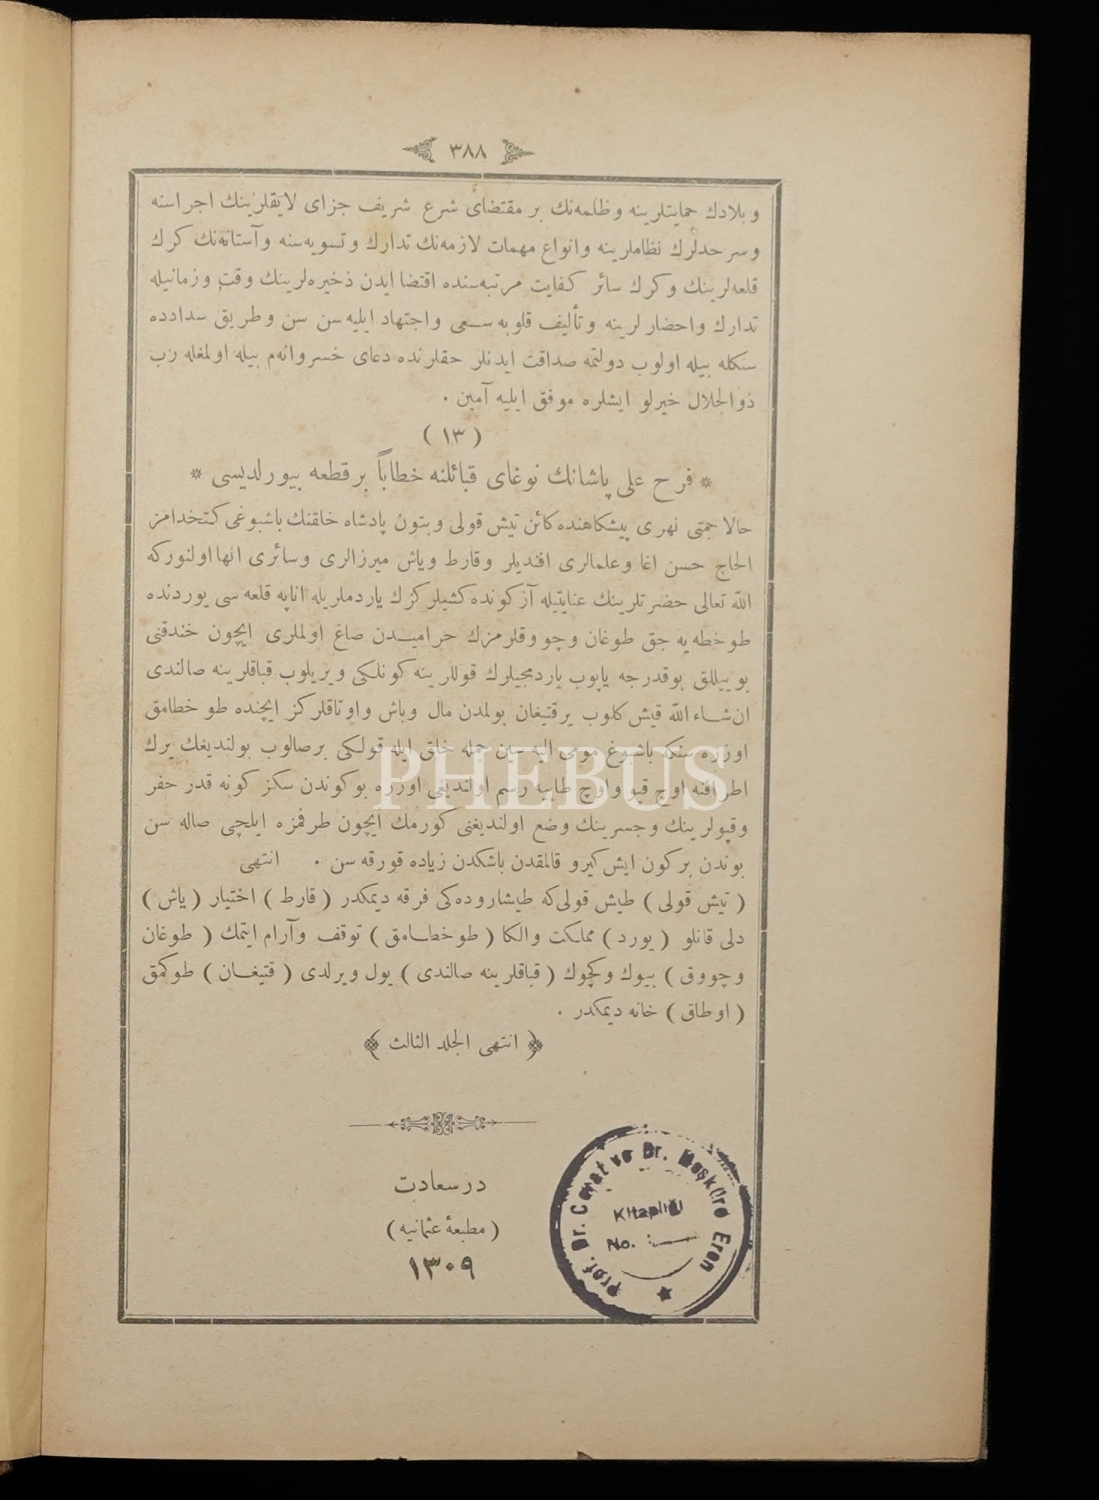 ٣٨٨
و بلادك حمايتلرينه و ظلمه‌نك بر مقتضاى شرع شريف جزاى لايقلرينك اجراسنه
و سرحدلرك نظاملرينه وانواع مهمات لازمه‌نك تدارك و تسويه‌سنه و آستانه‌نك كرك
قلعه‌لرينك و كرك سائر كفايت مرتبه‌سنده اقتضا ايدن ذخيره‌لرينك وقت و زمانيله
تدارك و احضارلرينه و تأليف قلوبه سعى و اجتهاد ايليه‌سن سن و طريق سدادده
سنكله بيله اولوب دولتمه صداقت ايدنلر حقلرنده دعاى خسروانه‌م بيله اولمغله رب
ذو الجلال خيرلو ايشلره موفق ايليه آمين .
( ١٣ )
* فرح على پاشانك نوغاى قبائلنه خطاباً بر قطعه بيورلديسى *
حالا جمتى نهرى پيشكاهنده كائن تيش قولى و بتون پادشاه خلقنك باشبوغى كتخدامز
الحاج حسن اغا و علمالرى افنديلر و قارط و ياش ميرزالرى و سائرى انها اولنوركه
الله تعالى حضرتلرينك عنايتيله آز كونده كشيلركزك ياردملريله اناپه قلعه سى يوردنده
طوخطه‌يه جق طوغان و چووقلرمزك حراميدن صاغ اولملرى ايچون خندقنى
بو ييللق بوقدرجه ياپوب ياردمجيلرك قوللرينه كونلكى ويريلوب قباقلرينه صالندى
ان شاء الله قيش كلوب ير قتيغان بولمدن مال و باش و اوتاقلركز ايچنده طوخطامق
اوزره سنكه باشبوغ مومى اليه سين جمله خلق ايله قولكى بر صالوب بولنديغك يرك
اطرافنه اوچ قپو و اوچ طابيا رسم اولنديغى اوزره بو كوندن سكز كونه قدر حفر
و قپولرينك و جسرينك وضع اولنديغنى كورمك ايچون طرفمزه ايلچى صاله سن
بوندن بر كون ايش كيرو قالمقدن باشكدن زياده قورقه سن . انتهى
( تيش قولى ) طيش قولى‌كه طيشاروده‌كى فرقه ديمكدر ( قارط ) اختيار ( ياش )
دلى قانلو ( يورد ) مملكت و الكا ( طوخطامق ) توقف و آرام ايتمك ( طوغان
و چووق ) بيوك و كچوك ( قباقلرينه صالندى ) يول ويرلدى ( قتيغان ) طوكمق
( اوطاق ) خانه ديمكدر .
﴿ انتهى الجلد الثالث ﴾
درسعادت
( مطبعۀ عثمانيه )
١٣٠٩
Prof. Dr. Cevat ve Dr. Meşkûre Eren
Kitaplığı
No. :
PHEBUS